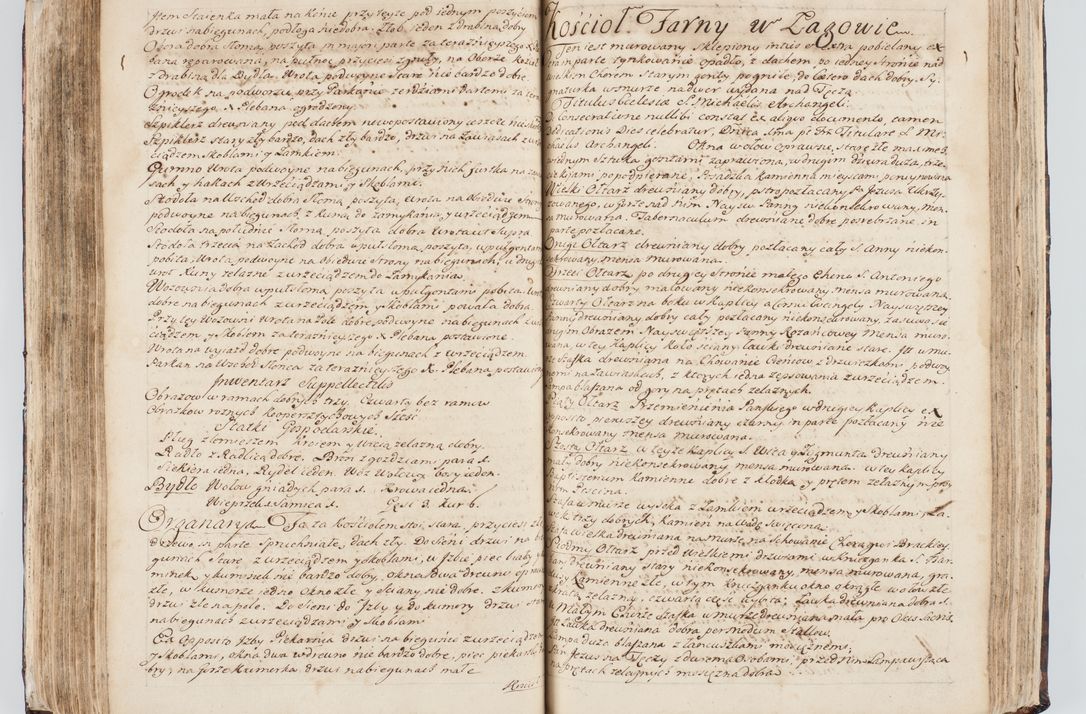 Item Staienka mała na konie przy teyże pod iednym poszyciem
drzwi na biegunach, podłoga niedobra. Złob ieden z drabiną dobry
Obora dobra słomą poszyta in majori parte za teraznieyszego X Ple
bana reparowana, na pułnoc przyciesi zgniły, na Oborze kozioł
z drabiną dla Bydła, Wrota podwoyne stare nie bardzo dobre.
Ogrodek na podworzu przy Parkanie żerdziami Partem za ter
aznieyszego X Plebana ogrodzony.
Szpiklerz drewniany pod dachem nowo postawiony ieszcze nie
Szpiklerz stary zły bardzo, dach zły bardzo, drzwi na zawiasach z wrze
ciądzem skoblami y zamkiem.
Gumno Wrota podwoyne na biegunach, przy nich furtka na zawia
sach, y hakach z wrzeciądzami y skoblami.
Stodoła na Wschod dobra słomą poszyta, wrota na obydwie strony
podwoyne na biegunach, z kuną do zamykania, y wrzeciądzem
Stodoła na południe słomą poszyta dobra wrota ut supra
Stodoła trzecia na zachod dobra w puł słomą poszyta, w puł gontami
pobita, Wrota podwoyne na obiedwie strony na biegunach, u drugich
wrot kuny żelazne z wrzeciądzem do zamykania.
Wozownia dobra w puł słomą poszyta w puł gontami pobita. wrota
dobre na biegunach z wrzeciądzem, y skoblami powała dobra.
Przy tey Wozowni Wrota na Pole dobre podwoyne na biegunach z wrze
ciądzem, y skoblem za teraznieyszego X Plebana postawione.
Wrota na wyiazd dobre podwoyne na biegunach z wrzeciądzem.
Parkan na Wschod słonca za teraznieyszego X. Plebana postawiony
Inwentarz Suppellectilis
Obrazow w ramach dobrych trzy, czwarty bez ramow
Obrazkow roznych kopersztychowych sześć
Statki Gospodarskie
Pług z lemieszem Kroiem y Wicią żelazną dobry
Radło z Radlicą dobre. Bron z gozdziami para 1.
Siekiera iedna, Rydel ieden Woz Wołowy bosy ieden.
Bydło Wołow gniadych para 1. Krowa iedna.
Wieprzek 1. Samica 1. Gęsi 3. kur 6.
Organarya Ta za Kościołem stoi, stara, przyciesi złe
drzewo in parte spruchniałe, dach zły. Do sieni drzwi na bie
gunach stare, z wrzeciądzem y skoblami, w Izbie piec biały, y ko
minek, y kuminek nie bardzo dobry, okna dwa drewno oprawne
złe, w kumorze iedno okno złe y ściany nie dobre. z kumory
drzwi złe na pole. Do sieni do Izby y do kumory drzwi stare
na biegunach z wrzeciądzami y skoblami
Ex opposito Izby Piekarnia drzwi na biegunie z wrzeciądzem
y skoblami, okna dwa w drewno nie bardzo dobre, piec piekarski do
bry, na gorze kumorka drzwi na biegunach małe
Kościoł Farny w Łagowie
Ten iest murowany sklepiony intus et extra pobielany ex
tra in parte tynkowanie opadło, z dachem po iedney stronie nad
wielkim Chorem starym gonty pogniłe, do latero dach dobry, Sy
gnaturka w murze nad wer wydana nad Tęczą.
Titulus Ecclesiæ S. Michaelis Archangeli.
Consecrationae nullibi constat ex aliquo documento, tamen
Dedicationis Dies celebratur, Dnica 1ma pt Fx Titulare S. Mi
chaelis Archangeli. Okna w ołow oprawne, stare złe maxime
w iednym sztuka gontami zaprawiona, w drugim dziura duża, trze
cie kijami popodpierane, Posadzka kamienna mieyscami poruynowana
Wielki Ołtarz drewniany dobry, wpstro pozłacany Pa Jezusa Ukrzy
żowanego, w gorze nad nim Naysw Panny niekonsekrowany, men
sa murowana. Tabernaculum drewniane dobre posrebrzane in
parte pozłacane.
Drugi Ołtarz drewniany dobry pozłacany cały S. Anny niekon
sekrowany, mensa murowana.
Trzeci Ołtarz po drugiey stronie małego Choru S. Antoniego
drewniany dobry malowany niekonsekrowany mensa murowana.
Czwarty Ołtarz na boku w Kaplicy a Cornu Evangely Nayswiętszey
Panny drewniany dobry cały pozłacany niekonsekrowany, zasuwa się
drugim Obrazem Nayswiętszey Panny Rozańcowey Mensa muro
wana, w tey Kaplicy koło ściany ławki drewniane stare. It w mu
rze szafka drewniana na Chowanie Cieniow z drzwiczkami podwoy
nemi na zawiaskach, z ktorych iedna zepsowana z wrzeciądzem.
Lampa blaszana od gry na prętach żelaznych.
Piąty Ołtarz Przemienienia Panskiego w drugiey Kaplicy ex
opposito pierwszey drewniany czarny in parte pozłacany nie
konsekrowany mensa murowana.
Szosty Ołtarz w teyże Kaplicy S. Wita y Zigmunta drewniany
mały dobry niekonsekrowany mensa murowana. w tey kaplicy
Baptisterium kamienne dobre z kłodką y prętem żelaznym przy
tym Piscina.
Szafa w murze wysoka z zamkiem wrzeciądzem, y skoblami, za
wiaski trzy dobrych, kamien na wodę Swięconą.
Szafa wielka drewniana na murze na schowanie Chorągwi Brackiey
Siodmy Ołtarz przed Wielkiemi drzwiami w kruchganku S. Bar
bary drewniany stary niekonsekrowany, mensa murowana, gra
dusy kamienne złe, w tym kruzganku okno okrągłe w ołow złe
z kratą żelazną, czwarta część wybita. Ławka drewniana dobra 1.
w Małym Chorze szafka w murze drewniana mała pro Oleis Sacris.
It Ławka drewniana dobra per modum Stallow.
Lampa duża blaszana z łancuszkami mosiężnemi
Pan Jezus na Tęczy z dwiema Osobami, przed nim lampa wisząca
na prętach żelaznych mosiężna dobra